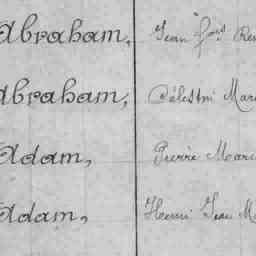 Abraham, Jean fçois Ren
Abraham, Célestin Mari
Adam, Pierre Marie
Adam, Henri Jean M